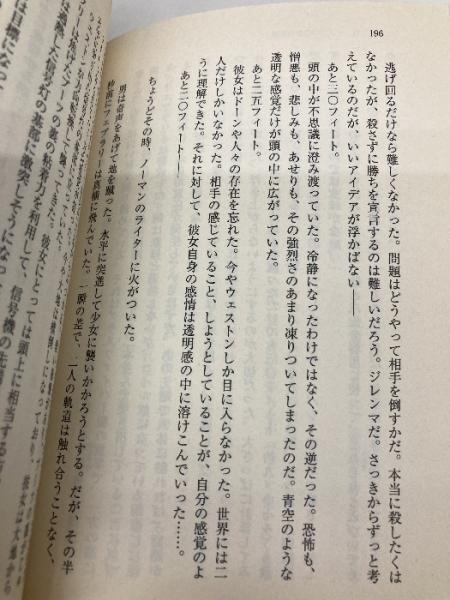 196
逃げ回るだけなら難しくなかった。問題はどうやって相手を倒すかだ。本当に殺したくは
なかったが、殺さずに勝ちを宣言するのは難しいだろう。ジレンマだ。さっきからずっと考
えているのだが、いいアイデアが浮かばない――
あと三〇フィート。
頭の中が不思議に澄み渡っていた。冷静になったわけではなく、その逆だった。恐怖も、
憎悪も、悲しみも、あせりも、その強烈さのあまり凍りついてしまったのだ。青空のような
透明な感覚だけが頭の中に広がっていた。
あと二五フィート。
彼女はドーンや人々の存在を忘れた。今やウェストンしか目に入らなかった。世界には二
人だけしかいなかった。相手の感じていること、しようとしていることが、自分の感覚のよ
うに理解できた。それに対して、彼女自身の感情は透明感の中に溶けこんでいった……。
あと二〇フィート――
ちょうどその時、ノーマンのライターに火がついた。
男は奇声をあげて地を蹴った。水平に突進して少女に襲いかかろうとする。だが、その半
秒前にフェブラリーは真横に飛んでいた。一瞬の差で、二人の軌道は触れ合うことなく、
の靴の粘着力を利用して、信号機の先
信号灯の基部に激突しそうになっ
彼女にとっては頭上に相当する
は目標にな